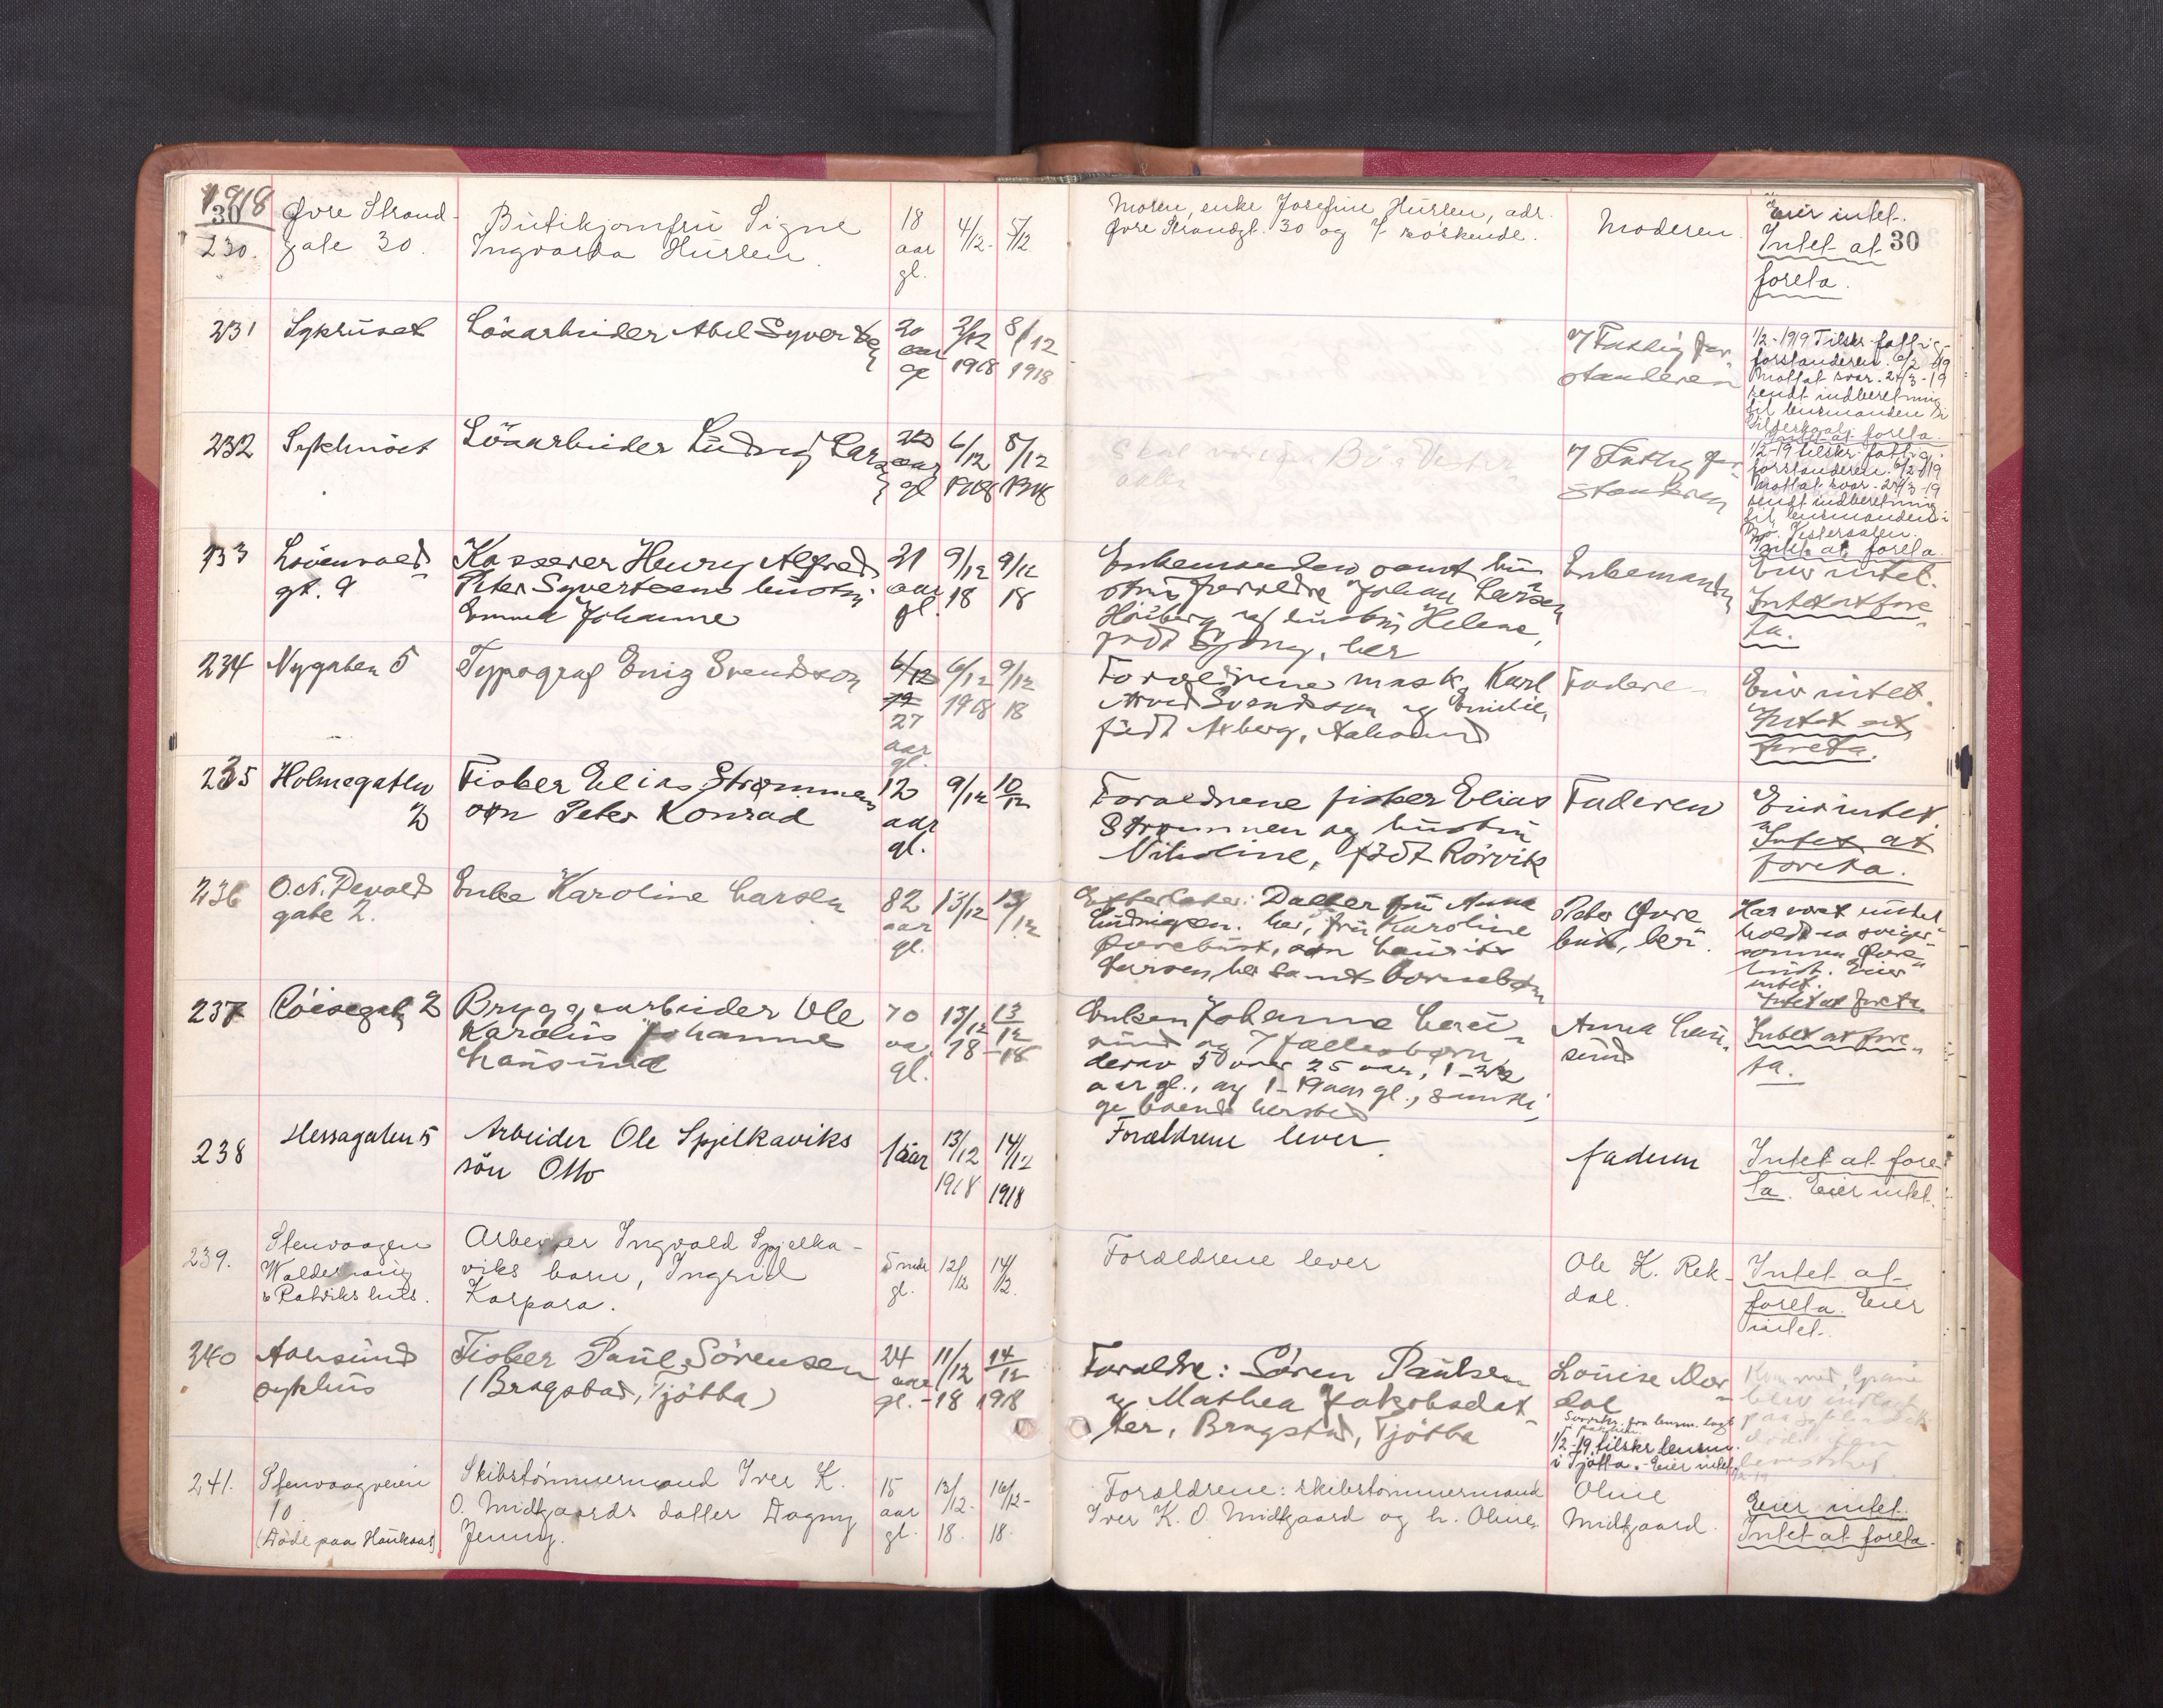 1918
30
230.
Øvre Strand-
gate 30.
Butikjomfru Signe
Ingvarda Hurlen.
18
aar
gl.
4/12-
5/12
Moren, enke Josefine Hurlen, adr.
Øvre Strandgt. 30 og 7 søskende.
Moderen.
Eier intet.
Intet at
foreta.
30
231
Sykhuset
Lösarbeider Abel Syvertsen
20
aar
gl
2/12
1918
8/12
1918
Fattigfor-
standeren
1/2-1919 Tilskr. fattig-
forstanderen. 6/2 1919
Mottat svar. 24/3-19
sendt indberetning
til lensmanden i
Gildeskaal.
Intet at foreta.
232
Sykehuset
Lösarbeider Ludvig Larsen
aar
gl
6/12
1918
8/12
1918
Skal være fra Bö i Vester-
aalen
Fattigfor-
standeren
1/2-19 tilskr. fattig-
forstanderen. 6/2-1919
Mottat svar. 24/3-19
sendt indberetning
til lensmanden i
Bø. Vesteraalen.
Intet at foreta.
233
Lövenvold
gt. 9
Kasserer Henry Alfred
Peter Syvertsens hustru
Emma Johanne
21
aar
gl.
9/12
18
9/12
18
Enkemanden samt hu-
strus forældre Johan Larsen
Höiberg og hustru Helene,
født Spöny, her
Enkemanden
Eier intet.
Intet at fore-
ta.
234
Nygaten 5
Typograf Enig Svendson
6/12
27
aar
gl.
6/12
1918
9/12
18
Forældrene mask. Karl
Arvid Svendsson og Emilie,
född Axberg, Aalesund
Faderen
Eier intet.
Intet at
foreta.
235
Holmegaten
2
Fisker Elias Strømmens
søn Peter Konrad
12
aar
gl.
9/12
10/12
Forældrene fisker Elias
Strømmen og hustru
Nikoline, född Rörvik
Faderen
Eier intet.
Intet at
foreta.
236
O.A. Devold
gate 2.
Enke Karoline Larsen
82
aar
gl.
13/12
13/12
Efterlater: Datter fru Anna
Ludvigsen. her, fru Karoline
Øvrebust, søn Laurits
Larsen, her samt barnebørn
Peter Øvre-
bust, her.
Har vært under-
holdt av sviger-
sønnen Øvre-
bust. Eier
intet.
Intet at foreta.
237
Röisegt. 2
Bryggearbeider Ole
Karolius Johannes
Lausund
70
aar
gl.
13/12
18-
13/12
18
Enken Johanne Lau-
sund og 7 fællesbørn,
derav 5 over 25 aar, 1 - 22
aar gl., og 1 - 19 aar gl., samtli-
ge boende hersted
Anna Lau-
sund
Intet at fore-
ta.
238
Hessagaten 5
Arbeider Ole Spjelkaviks
sön Otto
1 aar
13/12
1918
14/12
1918
Forældrene lever.
faderen
Intet at fore-
ta. Eier intet.
239.
Stenvaagen
Arbeider Ingvald Spjelka-
viks barn, Ingrid
Kaspara.
5 mdr
gl.
12/12
14/12.
Forældrene lever
Ole K. Rek-
dal.
Intet at
foreta. Eier
intet.
240
Aalesund
sykehus
Fisker Paul Sörensen
(Bragstad, Tjötta)
24
aar
gl.
11/12
-18
14/12
1918
Forældre: Sören Paulsen
og Mathea Jakobsdat-
ter, Bragstad, Tjötta
Louise Mor-
dal
1/2-19 tilskr. lensm.
i Tjøtta. Eier intet.
241.
Stenvaagveien
10
(Döde paa Haukaas)
Skibstömmermand Iver K.
O. Midtgaards datter Dagny
Jenny.
15
aar
gl.
13/12-
18.
16/12-
18.
Forældrene: skibstömmermand
Iver K. O. Midtgaard og h. Oline
Oline
Midtgaard.
Eier intet.
Intet at foreta.